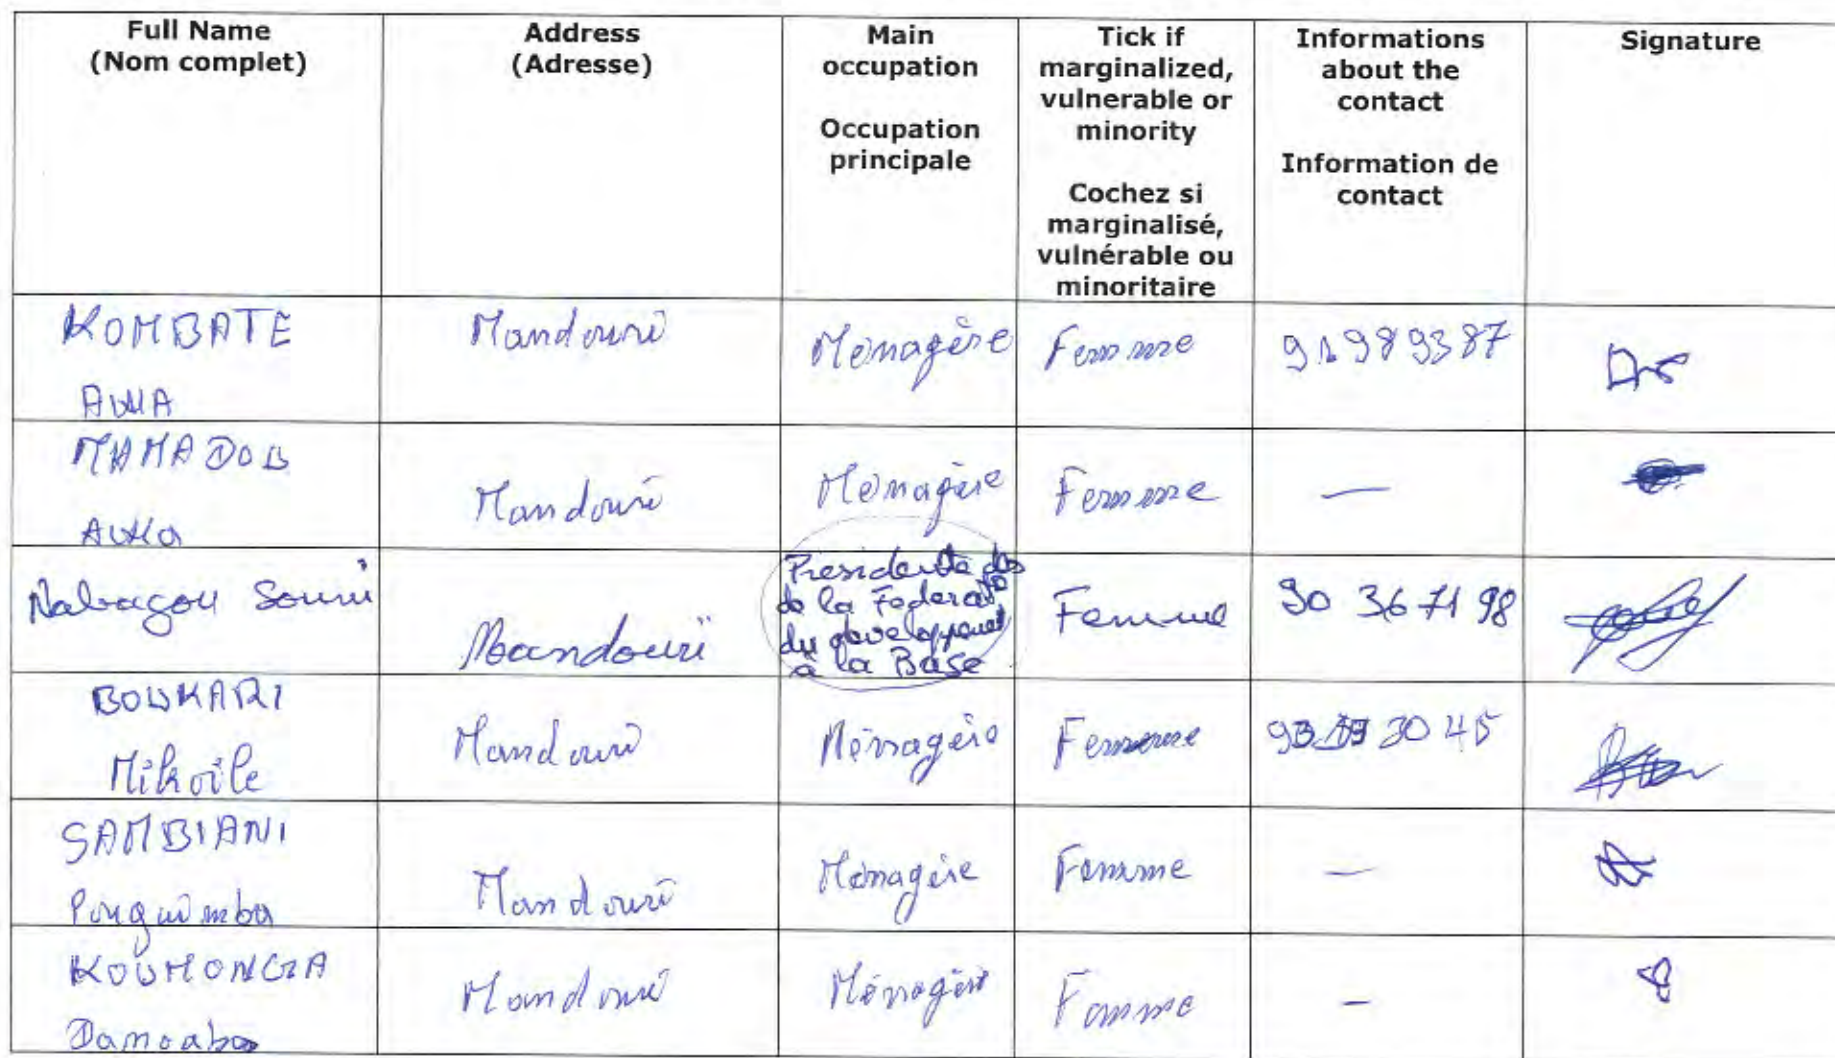 Full Name
(Nom complet)
Address
(Adresse)
Main
occupation
Occupation
principale
Tick if
marginalized,
vulnerable or
minority
Cochez si
marginalisé,
vulnérable ou
minoritaire
Informations
about the
contact
Information de
contact
Signature
KOMBATE
AWA
Mandouri
Ménagère
Femme
91989387
MAMADOU
Awa
Mandouri
Ménagère
Femme
—
Nabagou Souni
Mandouri
Presidente des
de la Federat°
du developpement
à la Base
Femme
90 36 71 98
BOUKARI
Mandouri
Ménagère
Femme
30 45
SAMBIANI
Mandouri
Ménagère
Femme
—
KOUMONGA
Damoaba
Mandouri
Ménagère
Femme
—